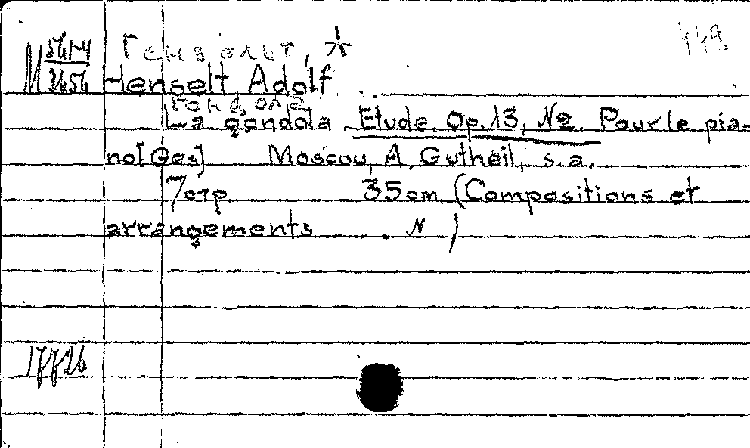 М 5614/3656
Гензельт, А
Henselt Adolf
Гондола
La gondola Etude. Op.13, №2. Pour le pia-
no [Ges] Moscou, A. Gutheil, s.a.
7 стр. 35 cm (Compositions et
arrangements N )